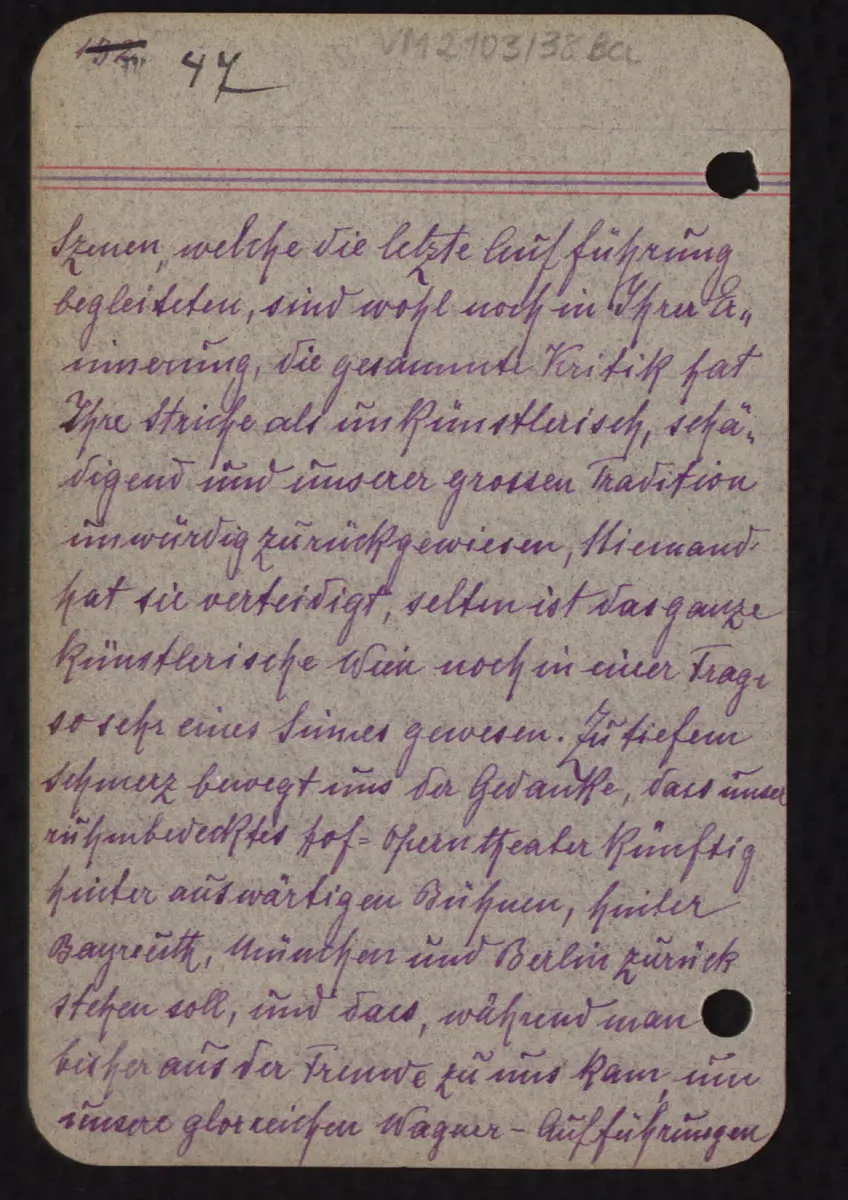 47
VM2103/38 Ba
Szenen, welche die letzte Aufführung
begleiteten, sind wohl noch in Ihrer Er„
innerung, die gesammte Kritik hat
Ihre Striche als unkünstlerisch, schä„
digend und unserer grossen Tradition
unwürdig zurückgewiesen, Niemand
hat sie verteidigt, selten ist das ganze
künstlerische Wien noch in einer Frage
so sehr eines Sinnes gewesen. Zu tiefem
Schmerz bewegt uns der Gedanke, dass unser
ruhmbedecktes Hof=Operntheater künftig
hinter auswärtigen Bühnen, hinter
Bayreuth, München und Berlin zurück
stehen soll, und dass, während man
bisher aus der Fremde zu uns kam, um
unsere glorreichen Wagner-Aufführungen